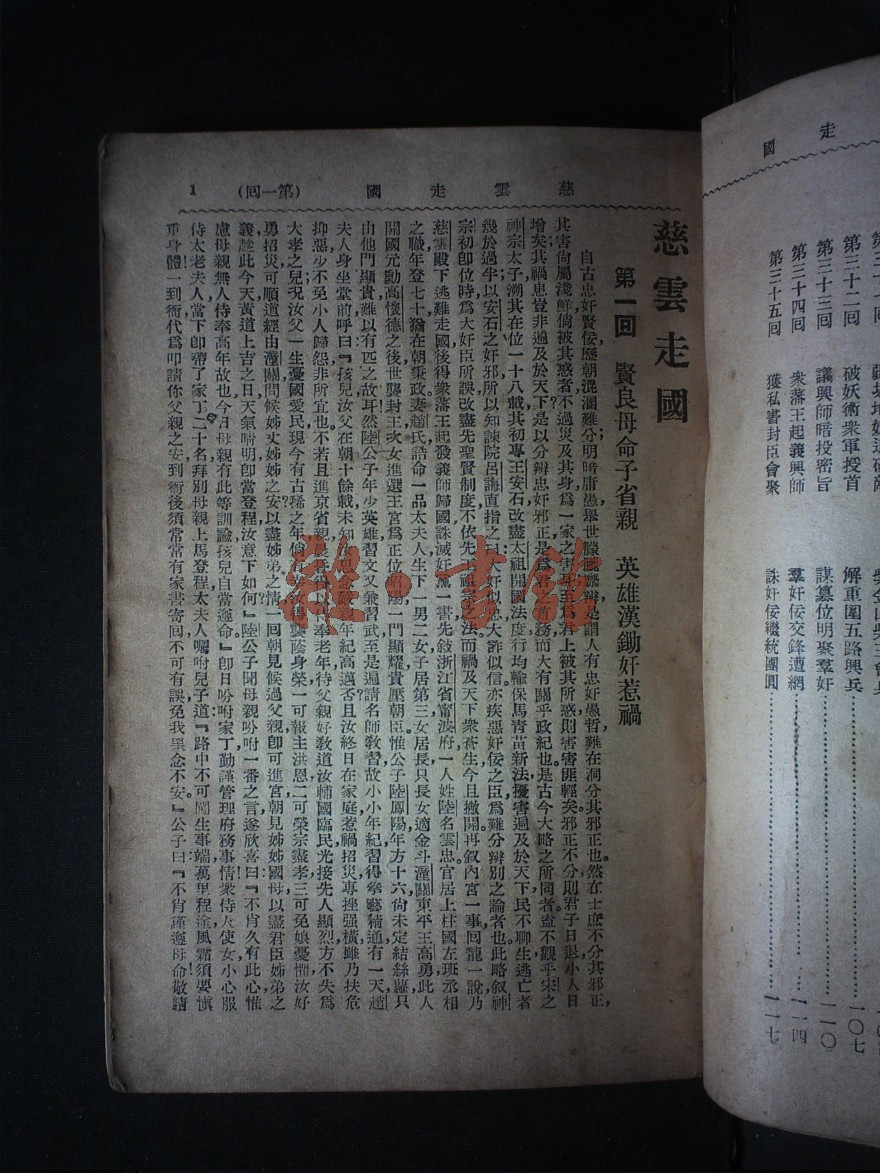 國　走
破妖術衆軍授首
第三十二回
第三十三回　議興師暗投密旨　謀篡位明聚羣奸……一一〇
第三十四回　衆藩王起義興師　羣奸佞交鋒遭網……一一四
第三十五回　獲私書封臣會聚　誅奸佞繼統團圓……一一七
解重圍五路興兵……一〇七
1　(第一回)　國　走　雲　慈
慈雲走國
第一回　賢良母命子省親　英雄漢鋤奸惹禍
自古忠奸賢佞歷朝混淆難分明暗庸愚舉世朦朧
人有忠奸愚哲難在洞分其邪正也然在士庶不分其邪正,
其害尙屬淺鮮倘被其惑者不過災及其身爲一家之害
君上被其所惑則害害匪輕矣邪正不分則君子日退小人日
增矣其禍患豈非遍及於天下是以分辨忠奸邪正是爲君之首務而大有關乎政紀也是古今大略之所同者盍不觀乎宋之
神宗太子溯其在位一十八載其初專王安石改盡太祖開國法度行均輸保馬靑苗新法擾害遍及於天下民不聊生逃亡者
幾於過半以安石之奸邪所以知諫院呂誨直指之曰大奸似忠大詐似信亦疾惡奸佞之臣爲難分辨別之論者也此略叙神
宗初卽位時爲大奸臣所誤改盡先聖賢制度不依先王祖宗之法而禍及天下衆蒼生今且撇開再叙內宮一事回龍一說乃
慈雲殿下逃難走國後得衆藩王起發義師歸國誅滅奸黨一書先叙浙江省甯波府一人姓陸名雲忠官居上柱國左班丞相
之職年登七十猶在朝秉政妻趙氏誥命一品太夫人生下一男二女子居第三女居長只長女適金斗潼關東平王高勇此人
開國元勳高懷德之後世襲封王次女進選王宮爲正位昭陽一門顯耀貴壓朝臣惟公子陸鳳陽年方十六尙未定結絲蘿只
由他門顯貴難以有匹之故耳然陸公子年少英雄習文又兼習武至是遍請名師敎習故小小年紀習得拳藝精通有一天趙
夫人身坐堂前呼曰『孩兒汝父在朝十餘載未知汝思念
年紀高邁否且汝終日在家庭惹禍招災專挫强橫雖乃扶危
抑惡少不免小人歸怨非所宜也不若且進京省親
得以侍奉老年待父親好敎道汝輔國臨民光接先人顯烈方不失爲
大孝之兒況汝父一生憂國愛民現今有古稀之年倘有
汝得襲蔭身榮一可報主洪恩二可榮宗盡孝三可免娘憂懼汝好
勇招災可順道經由潼關問候姊丈姊姊之安以盡姊弟之情一回朝見候過父親卽可進宮朝見姊姊國母以盡君臣姊弟之
義趁此今天黃道上吉之日天氣晴明卽當登程汝意下如何』陸公子聞母親吩咐一番之言遂欣喜曰『不肖久有此心惟
慮母親無人侍奉高年故也今日母親有此等訓諭孩兒自當遵命』卽日吩咐家丁勤謹管理府務事情衆侍火使女小心服
侍太老夫人當下卽帶了家丁二十名拜別母親上馬登程太夫人囑咐兒子道『路中不可鬧生事端萬里程途風霜須要愼
重身體一到衙代爲叩請你父親之安到衙後須常常有家書寄回不可有誤免我罣念不安』公子曰『不肖謹遵母命敬請
雅书馆